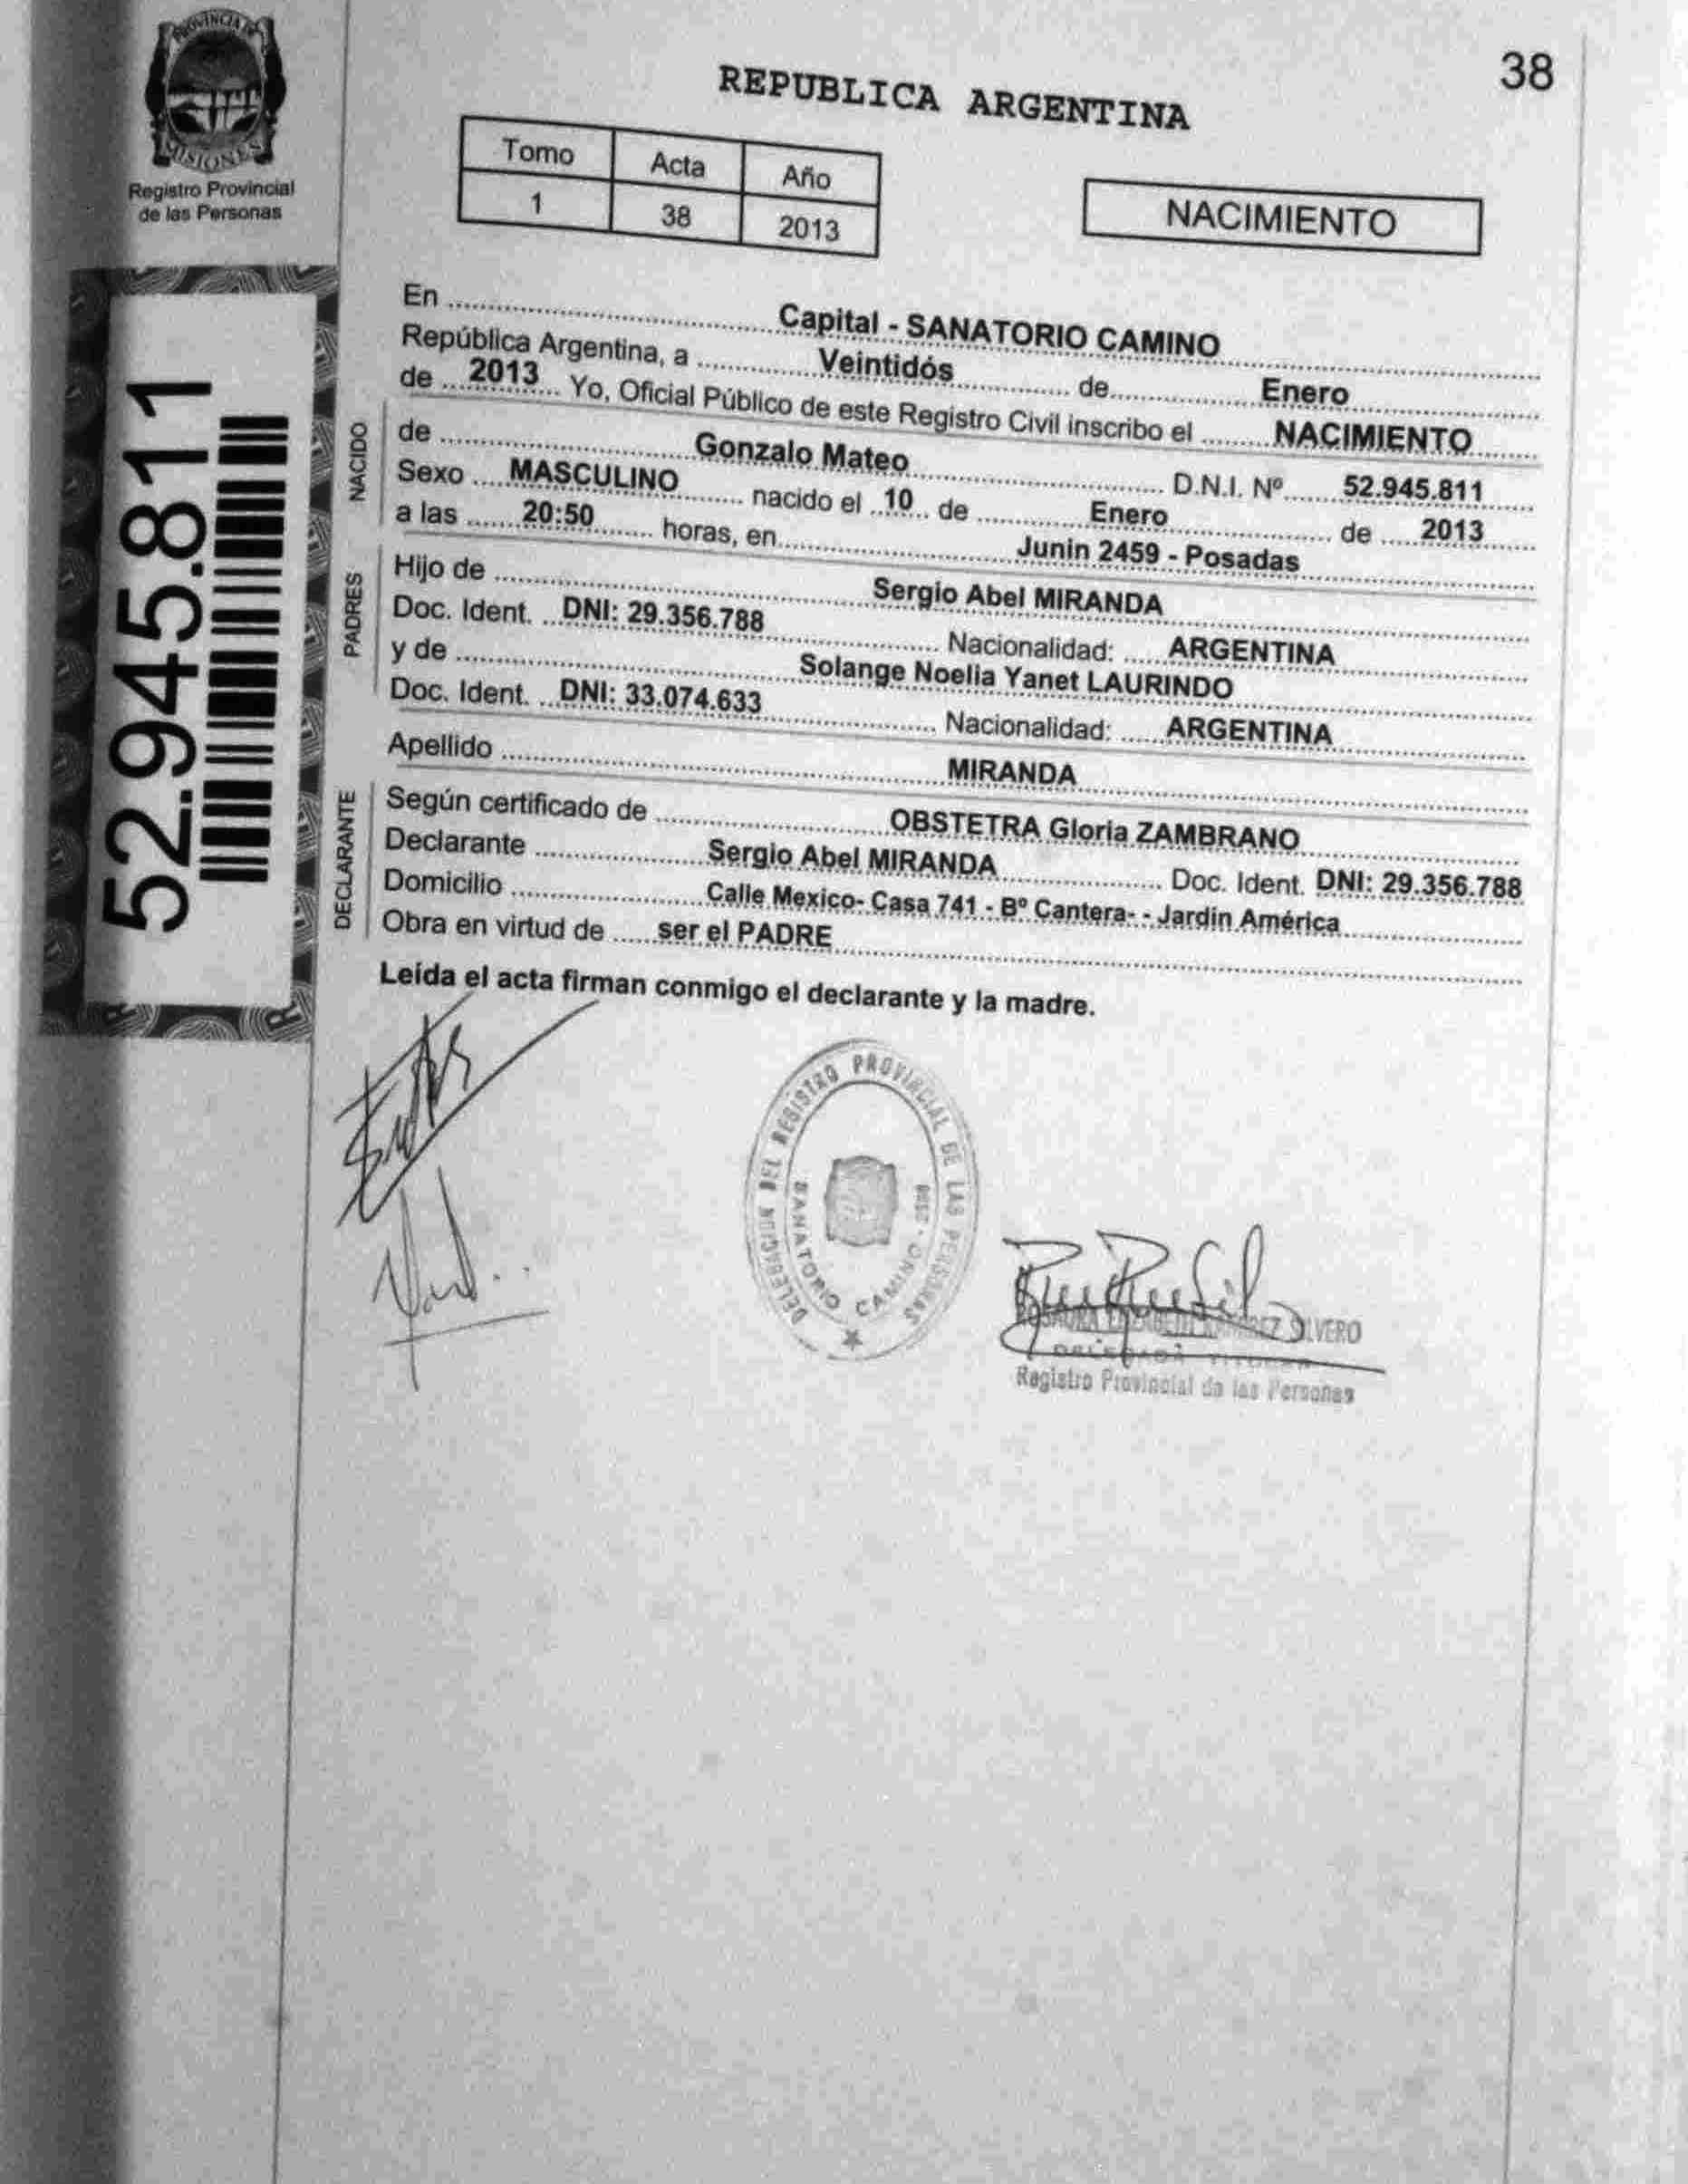 PROVINCIA DE
MISIONES
Registro Provincial
de las Personas
38
REPUBLICA ARGENTINA
Tomo Acta Año
1 38 2013
NACIMIENTO
52.945.811
En Capital - SANATORIO CAMINO
República Argentina, a Veintidós de Enero
de 2013 Yo, Oficial Público de este Registro Civil inscribo el NACIMIENTO
NACIDO
de Gonzalo Mateo D.N.I. Nº 52.945.811
Sexo MASCULINO nacido el 10 de Enero de 2013
a las 20:50 horas, en Junin 2459 - Posadas
PADRES
Hijo de Sergio Abel MIRANDA
Doc. Ident. DNI: 29.356.788 Nacionalidad: ARGENTINA
y de Solange Noelia Yanet LAURINDO
Doc. Ident. DNI: 33.074.633 Nacionalidad: ARGENTINA
Apellido MIRANDA
DECLARANTE
Según certificado de OBSTETRA Gloria ZAMBRANO
Declarante Sergio Abel MIRANDA Doc. Ident. DNI: 29.356.788
Domicilio Calle Mexico- Casa 741 - Bº Cantera- - Jardin América
Obra en virtud de ser el PADRE
Leída el acta firman conmigo el declarante y la madre.
DELEGACION DEL REGISTRO PROVINCIAL DE LAS PERSONAS
SANATORIO CAMINO
ROSAURA ELIZABETH RAMIREZ SILVERO
DELEGADA TITULAR
Registro Provincial de las Personas